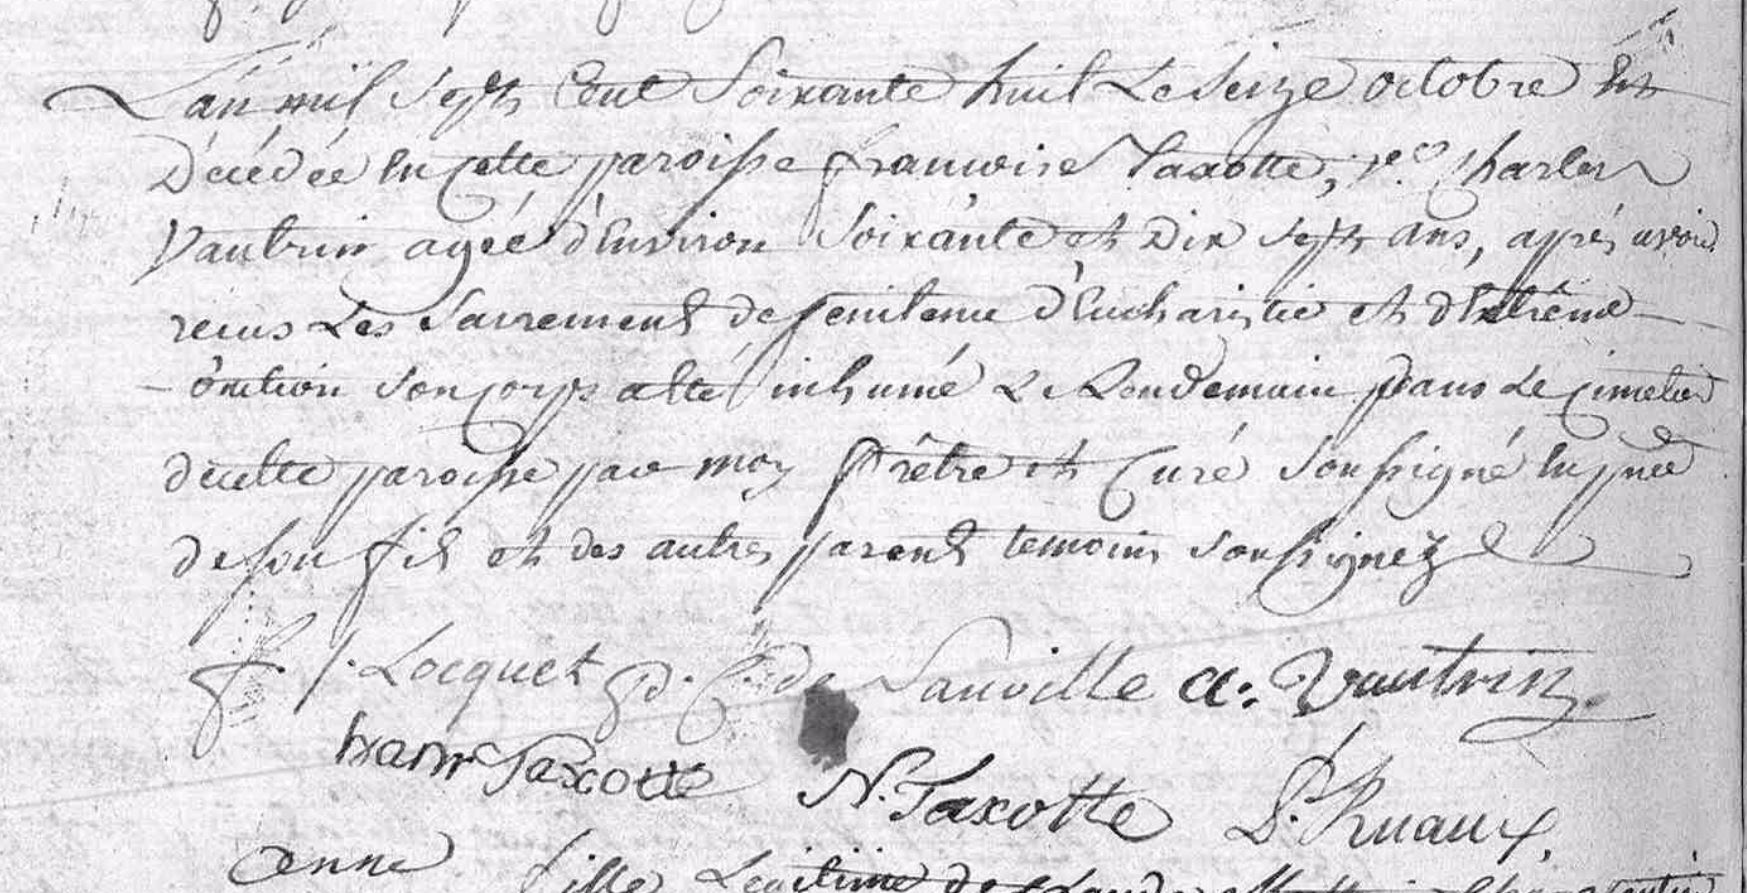 L'an mil sept Cent Soixante huit Le Seize octobre Est
Décédée en Cette paroisse francoise Taxotte, ve Charles
Vautrin agée d'Environ Soixante et Dix sept ans, aprés avoir
recus Les Sacrement de penitence d'Eucharistie et d'Extrême
onction son corps a été inhumé Le Lendemain dans Le Cimetier
de cette paroisse par moy Prêtre et Curé soussigné en pnce
de son fils et des autres parents temoins soussignez
f. J. Locquet P. C. de Sauville a: Vautrin
Taxotte N. Taxotte Ruaux
anne fille Légitime de